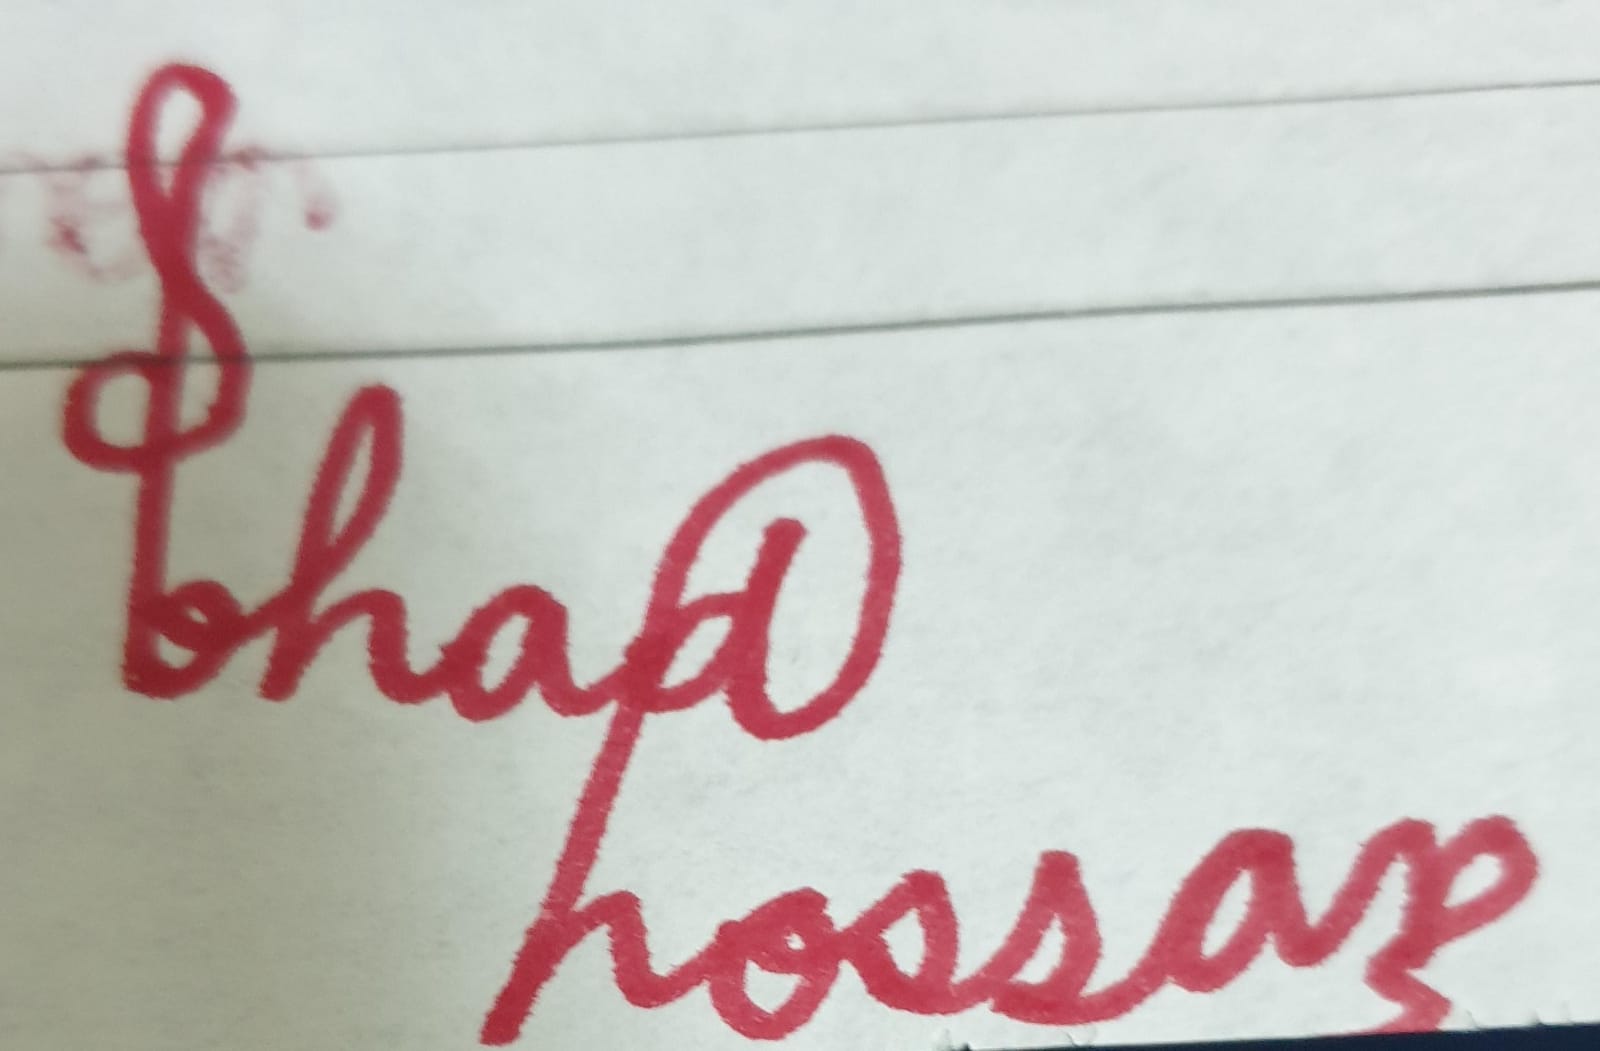 Sohad
hossaz